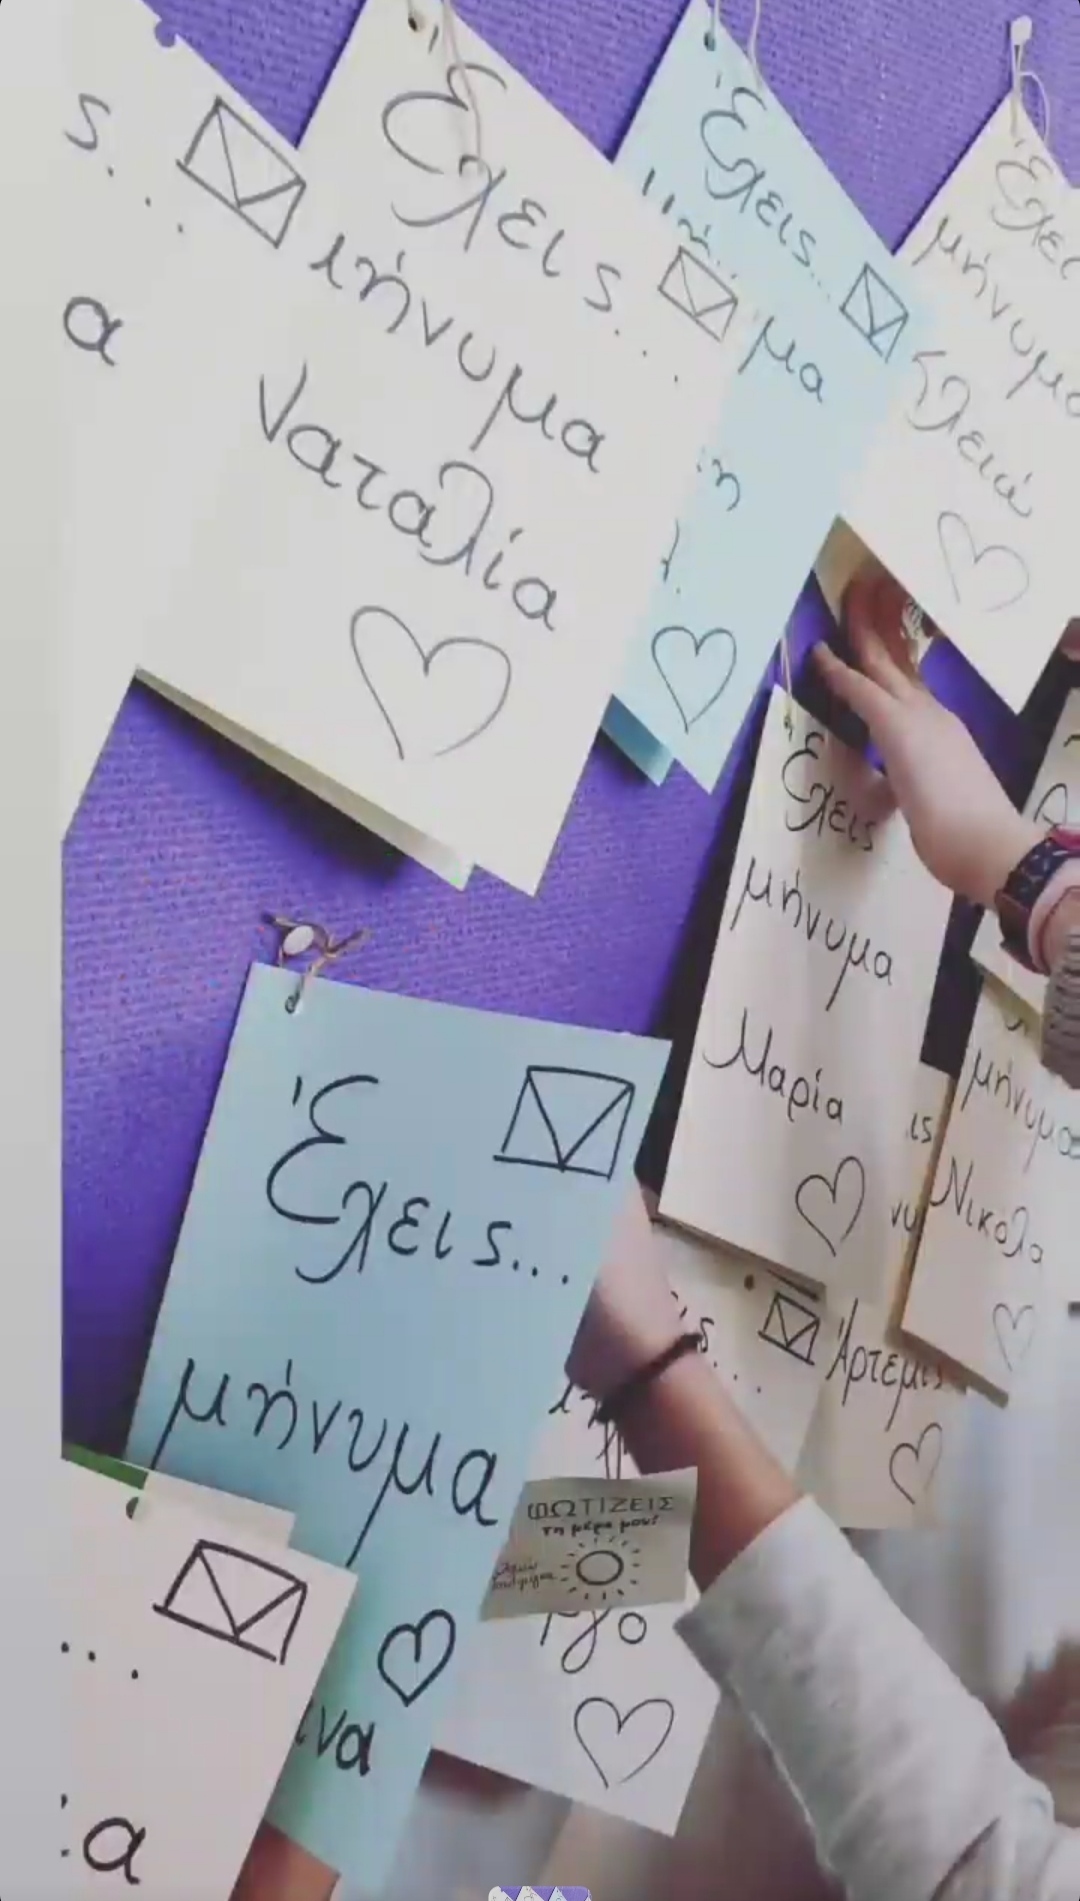 ς...
α
Έχεις...
μήνυμα
Ναταλία
Έχεις...
μα
Έχεις
μήνυμα
Κλειώ
Έχεις
μήνυμα
Μαρία
μήνυμα
Νικόλα
Άρτεμις
Έχεις...
μήνυμα
ινα
ΦΩΤΙΖΕΙΣ
τη μέρα μου!
...
α